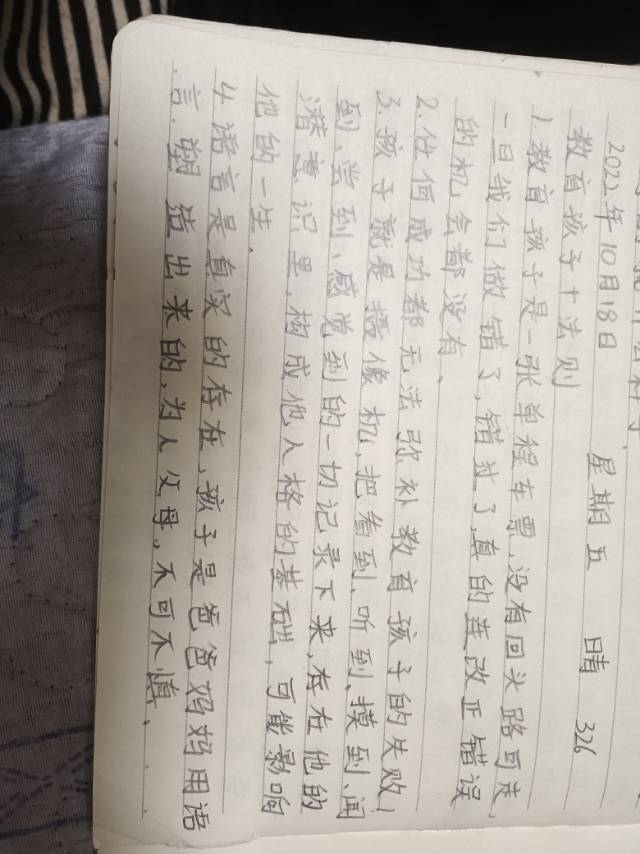 2022年10月18日 星期五 晴 326
教育孩子十法则
1.教育孩子是一张单程车票,没有回头路可走,
一旦我们做错了,错过了,真的连改正错误
的机会都没有、
2.任何成功都无法弥补教育孩子的失败!
3.孩子就是摄像机,把看到、听到、摸到、闻
到、尝到、感觉到的一切记录下来,存在他的
潜意识里,构成他人格的基础,可能影响
他的一生.
4.语言是真实的存在,孩子是爸爸妈妈用语
言.塑造出来的,为人父母,不可不慎、...